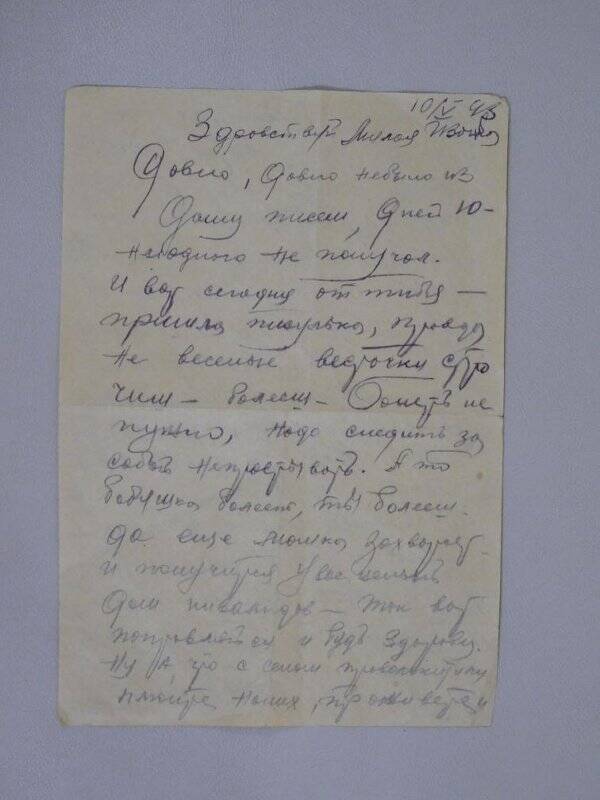 10/V 43
Здравствуй Милая
Давно, Давно небыло из
Дому писем, Дней 10-
Неодного не получал.
И вот сегодня от тибя —
пришла писулька, правда
Не веселые весточки стро
чиш — болееш — Болеть не
нужно, надо следить за
собой непростывать. А то
бабушка болеет, ты болееш.
да еще мамка захворает
и получится у вас целый
Дом инвалидов — так вот
поправляйся и будь здорова.
Ну а, что с сеном
плюйте на них, проживете и